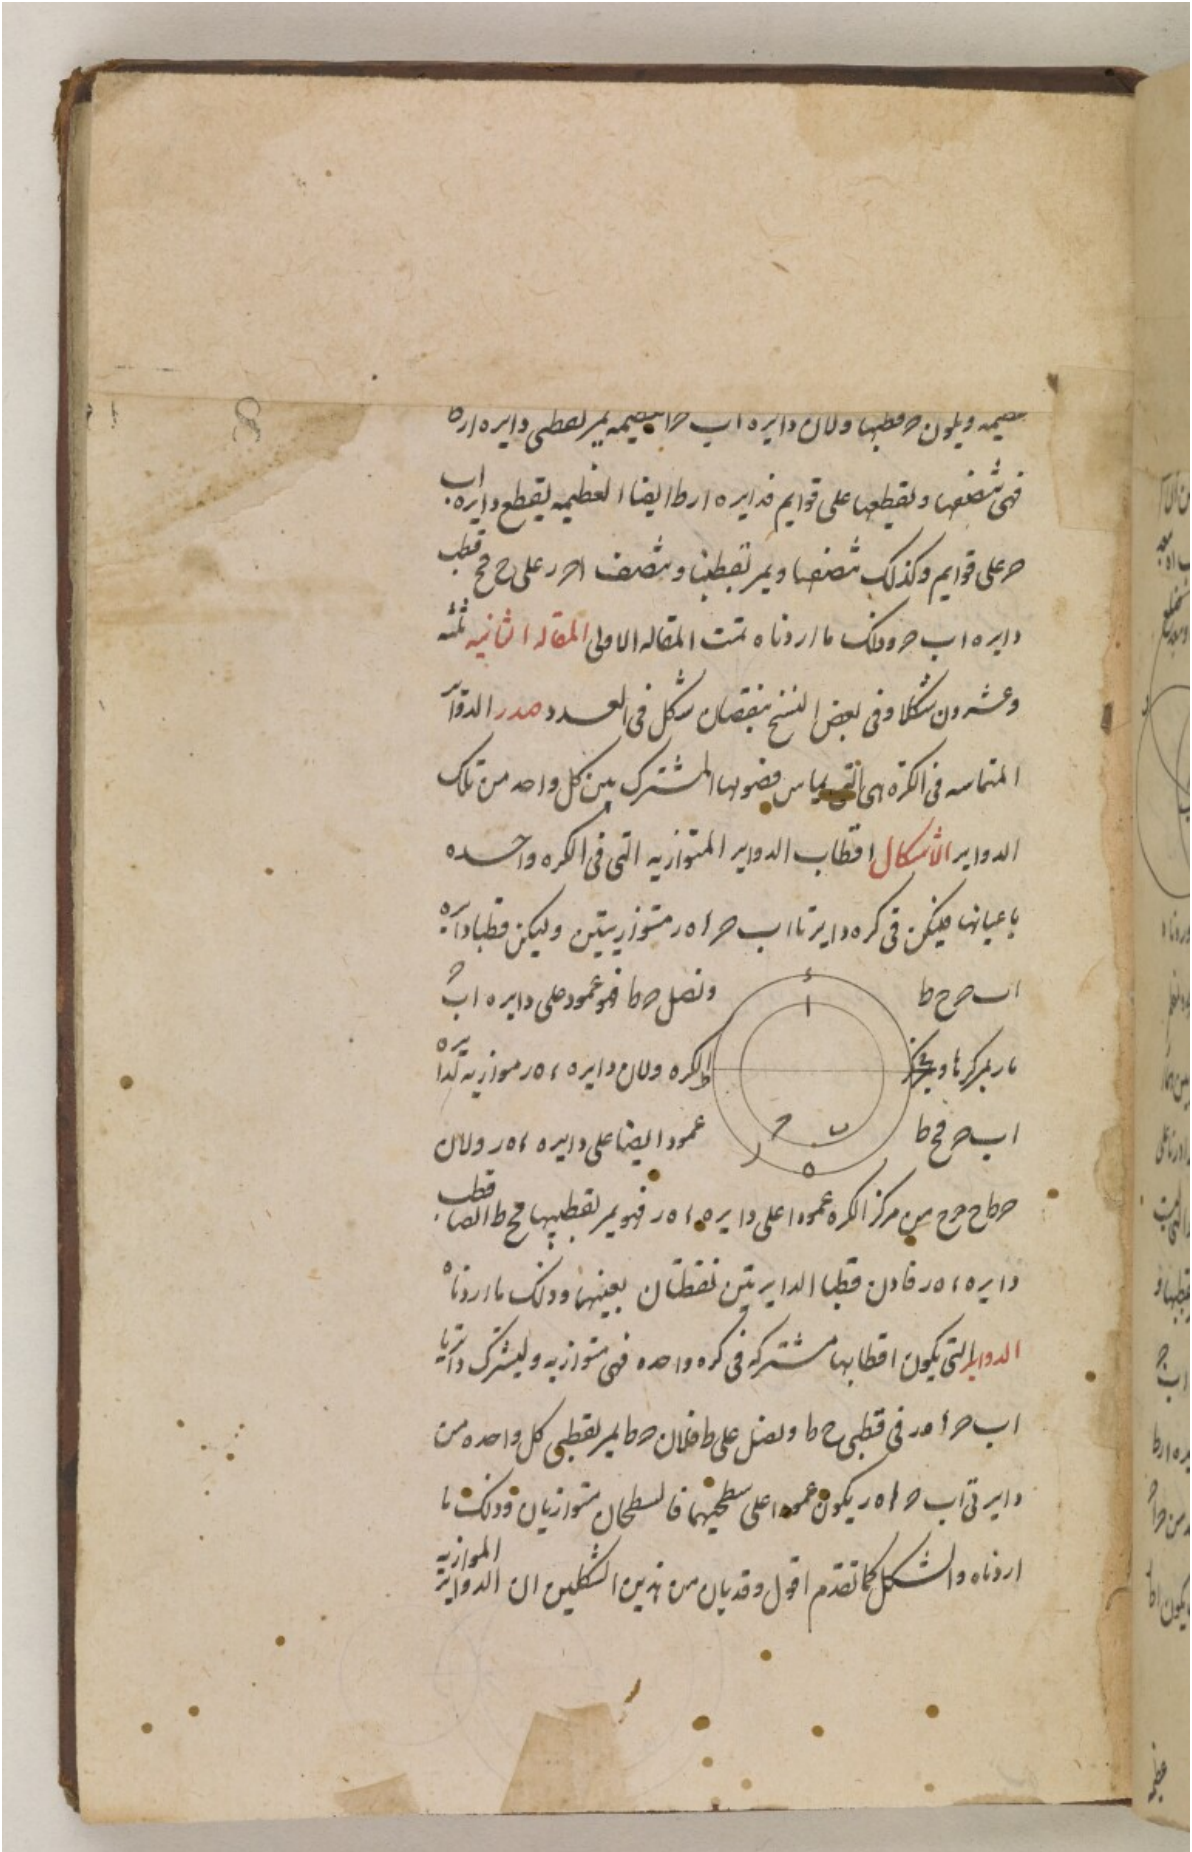 عظيمه ويكون ح قطبها ولان دايره اب ح العظيمه يمر بقطبى دايره ا ر ط
فهى تنصفها وتقطعها على قوايم فدايره ا ر ط ايضا العظيمه يقطع دايره اب
ح على قوايم وكذلك تنصفها ويمر بقطبيها وتنصف ا ح ر على ح فح قطب
دايره اب ح وذلك ما اردناه تمت المقاله الاولى المقاله الثانيه ثلثه
وعشرون شكلا وفى بعض النسخ بنقصان شكل فى العدد صدر الدواير
المتماسه فى الكرة هى التى يماس فصولها المشترك بين كل واحد من تلك
الدواير الاشكال اقطاب الدواير المتوازيه التى فى الكره واحده
باعيانها فليكن فى كره دايرتا اب ح ء ه ر متوازيتين وليكن قطبا دايره
اب ح ح ط ونصل ح ط فهو عمود على دايره اب ح
مار بمركزها وبمركز الكره ولان دايره ء ه ر موازيه لدايره
اب ح فح ط عمود ايضا على دايره ء ه ر ولان
ح ط خرج من مركز الكره عمودا على دايره ء ه ر فهو يمر بقطبيها فح ط ايضا قطب
دايره ء ه ر فاذن قطبا الدايرتين نقطتان بعينهما وذلك ما اردناه
الدواير التى يكون اقطابها مشتركه فى كره واحده فهى متوازيه وليشترك دايرتا
اب ح ء ه ر فى قطبى ح ط ونصل ح ط فلان ح ط يمر بقطبى كل واحده من
دايرتى اب ح ء ه ر يكون عمودا على سطحيهما فالسطحان متوازيان وذلك ما
اردناه والشكل كما تقدم اقول وقد بان من هذين الشكلين ان الدواير الموازيه